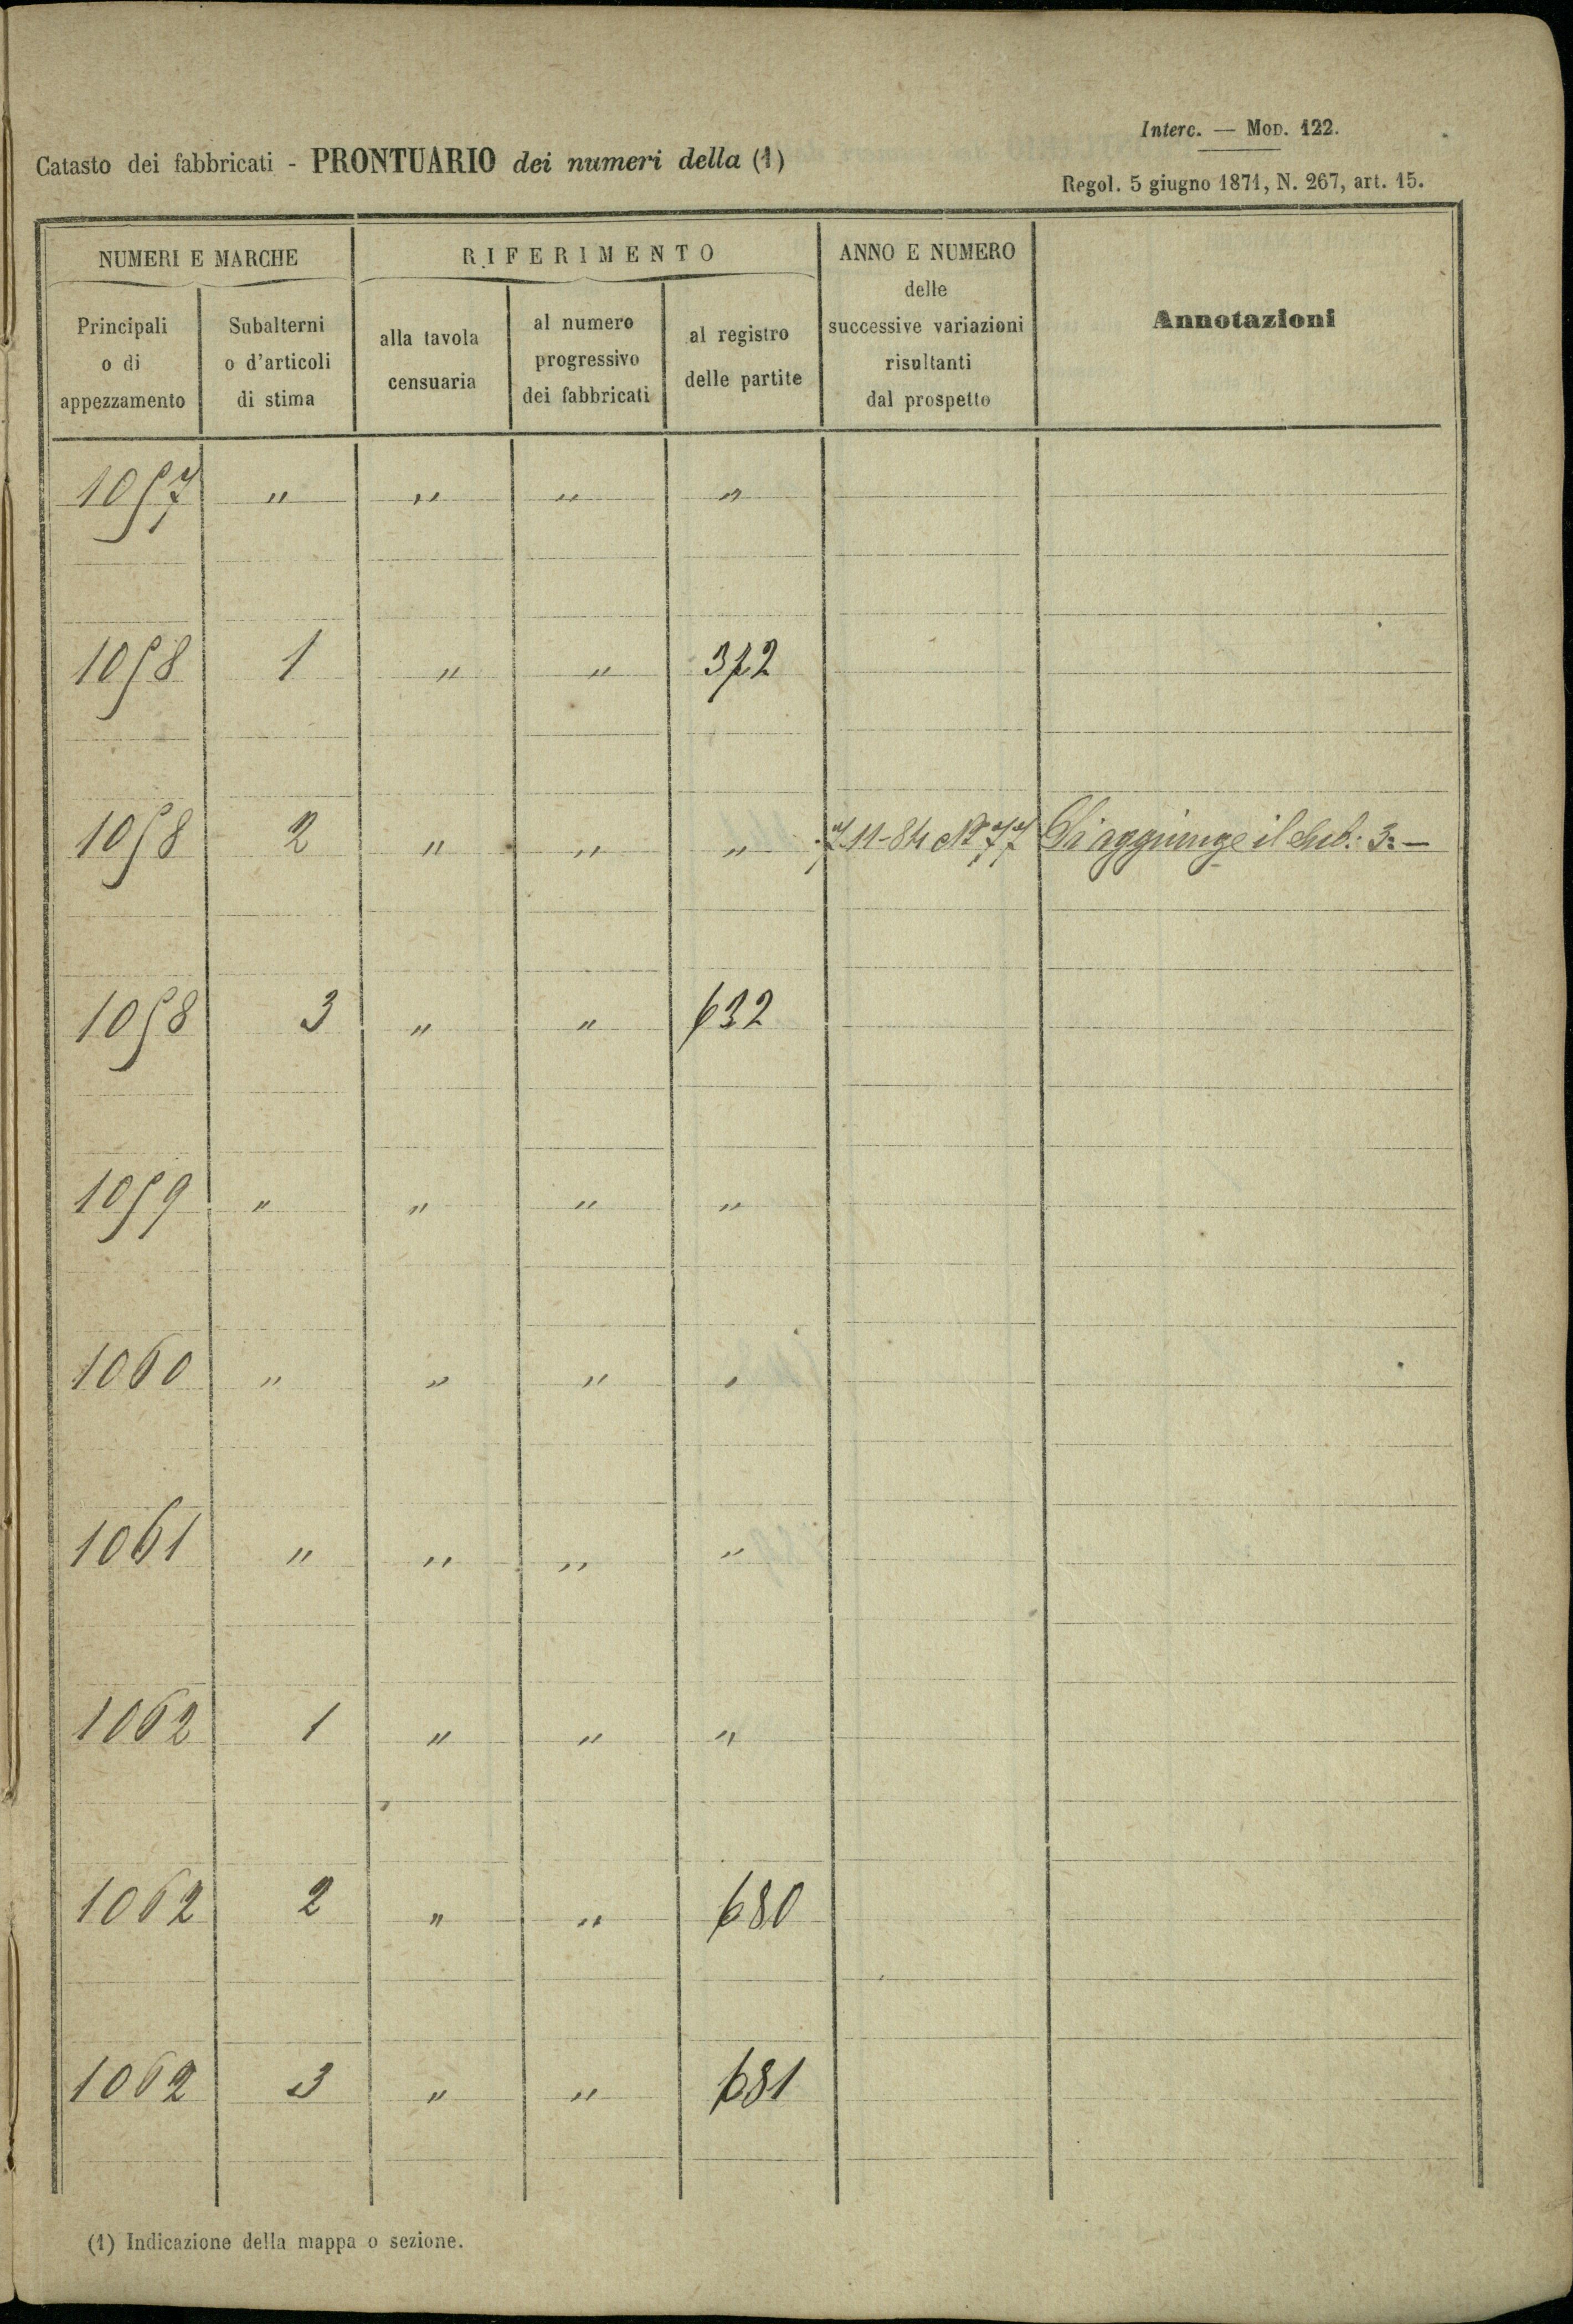 Interc. — Mod. 122.
Catasto dei fabbricati - PRONTUARIO dei numeri della (1)
Regol. 5 giugno 1871, N. 267, art. 15.
NUMERI E MARCHE
RIFERIMENTO
ANNO E NUMERO
delle
successive variazioni
risultanti
dal prospetto
Annotazioni
Principali
o di
appezzamento
Subalterni
o d'articoli
di stima
alla tavola
censuaria
al numero
progressivo
dei fabbricati
al registro
delle partite
1057 " " " "
1058 1 " " 372
1058 2 " " " 7-11-84 N° 77 Si aggiunge il Sub: 3: —
1058 3 " " 632
1059 " " " "
1060 " " " "
1061 " " " "
1062 1 " " "
1062 2 " " 680
1062 3 " " 681
(1) Indicazione della mappa o sezione.